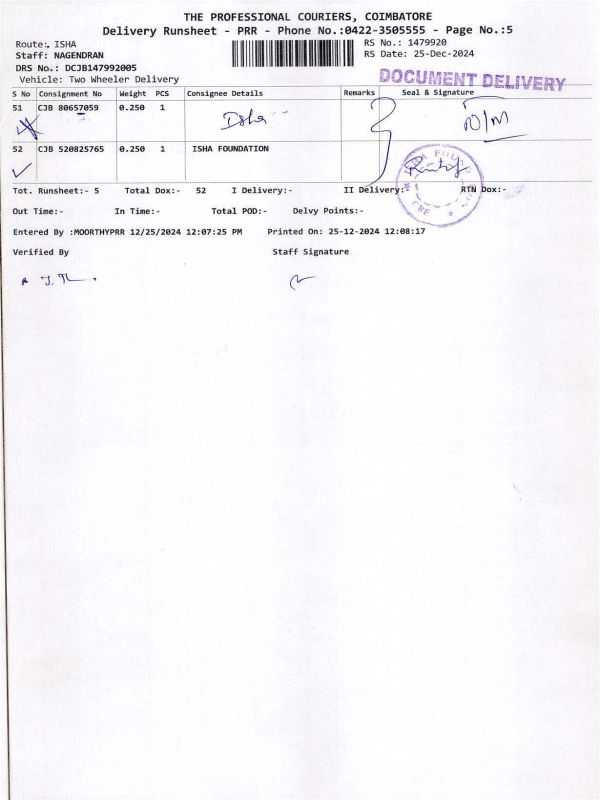 THE PROFESSIONAL COURIERS, COIMBATORE
Delivery Runsheet - PRR - Phone No.:0422-3505555 - Page No.:5
Route:. ISHA
RS No.: 1479920
Staff: NAGENDRAN
RS Date: 25-Dec-2024
DRS No.: DCJB147992005
Vehicle: Two Wheeler Delivery
DOCUMENT DELIVERY
S No Consignment No Weight PCS Consignee Details Remarks Seal & Signature
51 CJB 80657059 0.250 1 Isha D/M
52 CJB 520825765 0.250 1 ISHA FOUNDATION
Tot. Runsheet:- 5 Total Dox:- 52 I Delivery:- II Delivery:- RTN Dox:-
Out Time:- In Time:- Total POD:- Delvy Points:-
Entered By :MOORTHYPRR 12/25/2024 12:07:25 PM Printed On: 25-12-2024 12:08:17
Verified By Staff Signature